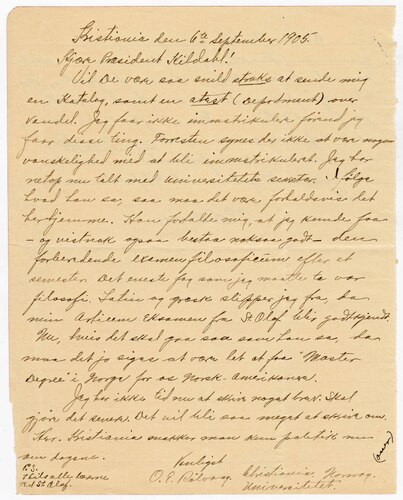 Kristiania den 6te September 1905.
Kjære Præsident Kildahl!
Vil De være saa snild straks at sende mig
en Katalog, samt en atest (Deportment) over
vandel. Jeg faar ikke immatrikulere førend jeg
faar disse ting. Forresten synes der ikke at være nogen
vanskelighed med at bli immatrikuleret. Jeg har
netop nu talt med universitetets sekretær. Ifølge
hvad han sa, saa maa det være forholdsvis let
her hjemme. Han fortalte mig, at jeg kunde faa
og vistnok ogsaa bestaa noksaa godt den
forberedende examen filosoficum efter et
semester. Det eneste fag som jeg maatte ta var
filosofi. Latin og græsk slipper jeg fra, da
min Artium Eksamen fra St. Olaf blir godkjendt.
Nu, hvis det skal gaa saa som han sa, da
maa det jo siges at være let at faa "Master
Degree" i Norge for os Norsk-Amerikanere.
Jeg har ikke tid nu at skrive noget brev. Skal
gjøre det senere. Det vil bli saa meget at skrive om.
Her i Kristiania snakker man kun politik nu
om dagene.
Venligst
O. E. Rölvaag, Christiania, Norway.
Universitetet.
(over)
P.S.
Hils alle
ved St. Olaf.